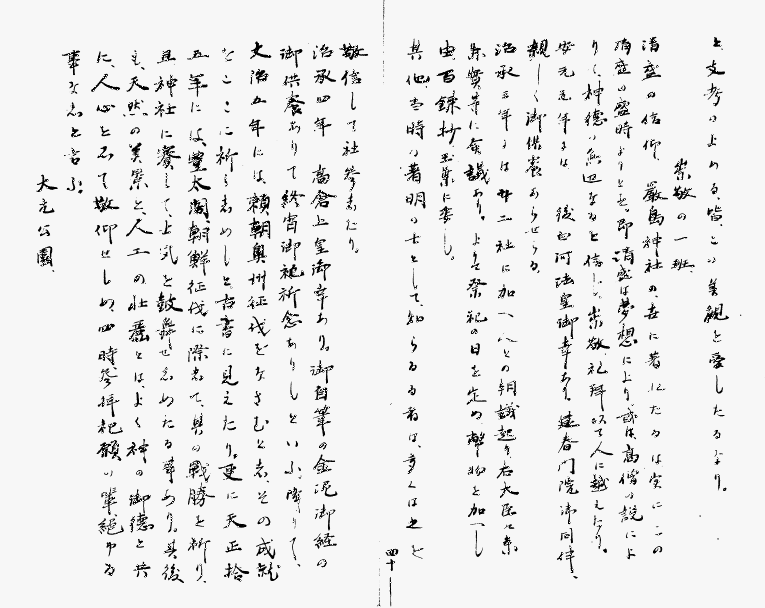 と、支考のよめる、皆、この美観を愛したるなり。
崇敬の一班
清盛の信仰 厳島神社の、世に著はれたるは実にこの
清盛の盛時よりとす。即清盛は夢想により、或は高僧の説によ
りて、神徳の無辺なるを信じ、崇敬礼拝以て人に越えたり。
安元元年には、後白河法皇御幸あり、建春門院御同伴、
親しく御供養あらせらる。
治承三年には廿二社に加へんとの朝議起り、右大臣兼
実賞等に会議あり。よりて祭祀の日を定め、幣物を加へし
由、百錬抄、玉葉に委し。
其他、当時の著明の士として、知らるる者は、多くは之を
四十
敬信して社参したり。
治承四年 高倉上皇御幸あり。御自筆の金泥御経の
御供養ありて終宵御祈念ありしといふ、降りて、
文治五年には、頼朝奥州征伐をなさむとし、その成就
をここに祈らしめしと古書に見えたり。更に天正拾
五年には、豊太閤、朝鮮征伐に際して、其の戦勝を祈り、
且神社に賽して、士気を鼓舞せしめたる事あり。其後
も、天然の美景と、人工の壮麗とは、よく神の御徳と共
に、人心をして敬仰せしめ、四時参拝祀願の輩絶ゆる
事なしと言ふ。
大元公園